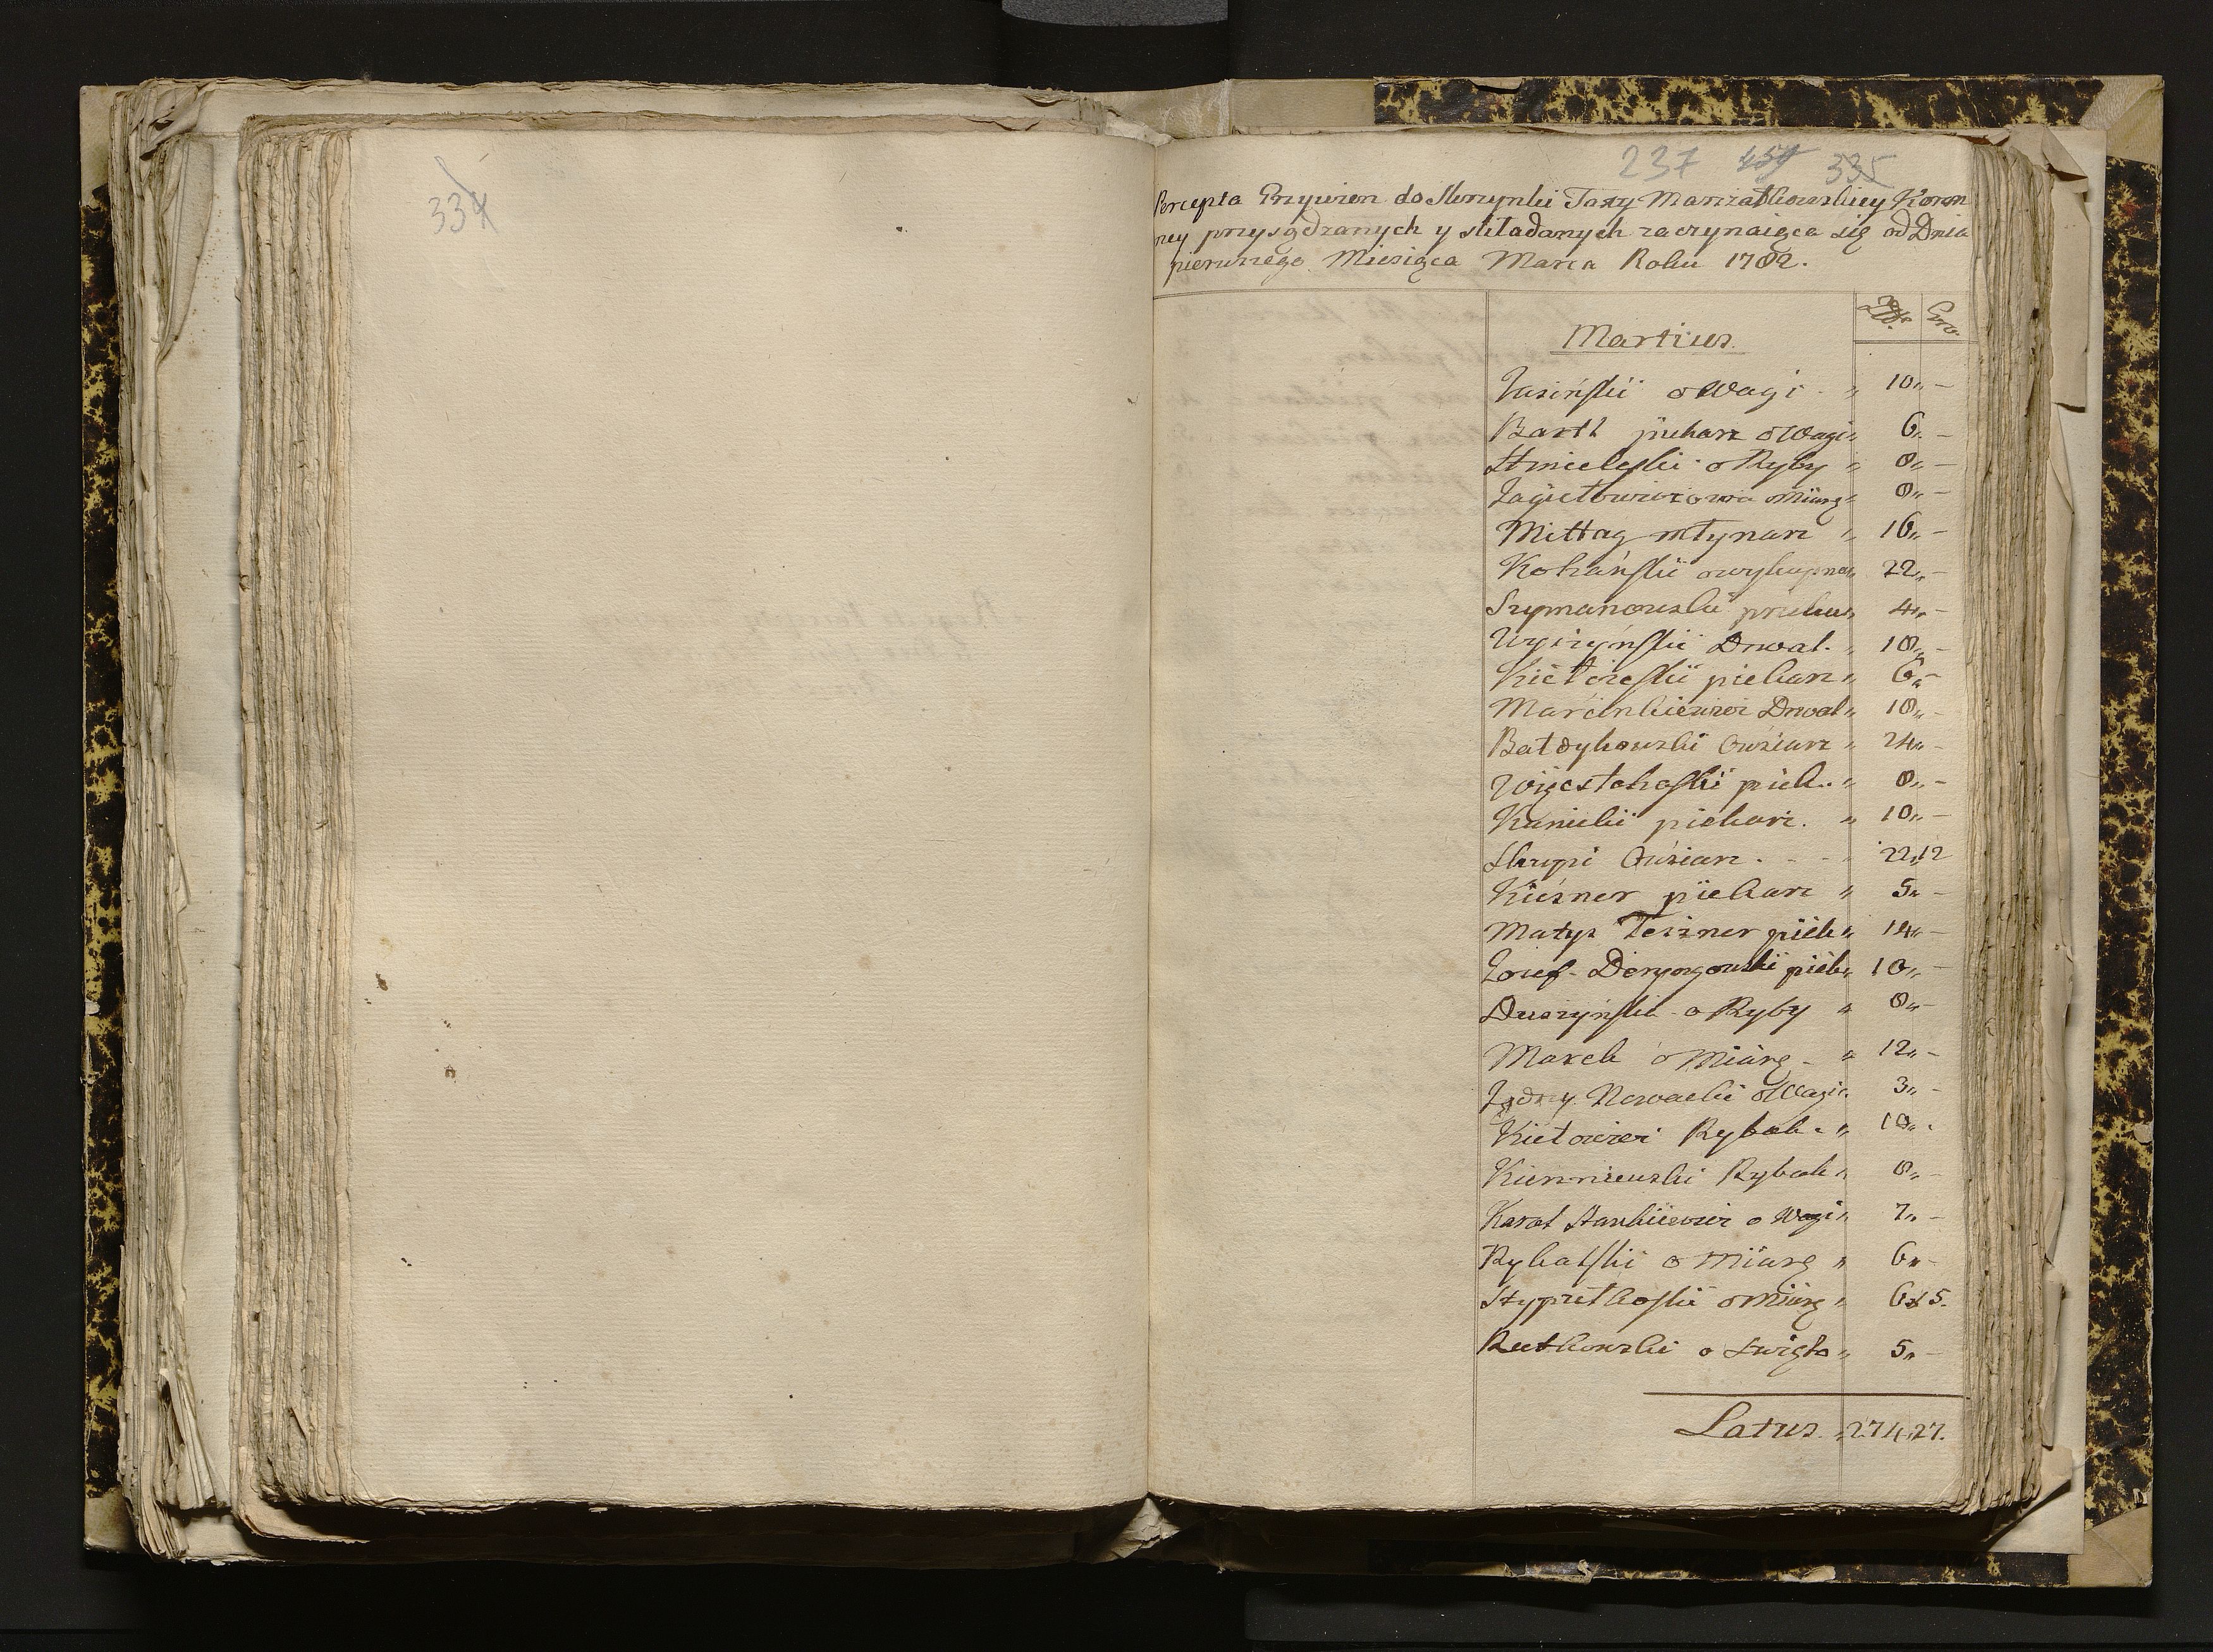 334
237 454 335
Percepta Grzywien do Skrzynki Taxy Marszałkowskiey Koron
ney przysądzanych y składanych zaczynaiąca się od Dnia
pierwszego Miesiąca Marca Roku 1782.
Martius. Złt. Gro.
Jasińskii o Wagi " 10 " -
Barth piekarz o Wagi " 6 " -
Chmielefskii o Ryby " 8 " -
o Miarę " 8 " -
Mittag młynarz " 16 " -
Kohańskii o wykupno " 22 " -
Szymanowskii piekarz " 4 " -
Uyżyńskii Drwal. " 18 " -
piekarz " 6 " -
Marcinkiewicz Drwal " 18 " -
Bałdykowski Owsiarz " 24 " -
piek. " 8 " -
Kanickii piekarz. " 10 " -
Skupi Owsiarz. - - " 22 " 12
Kiesner piekarz " 5 " -
Matys Teszner piek. " 14 " -
Josef piek. " 10 " -
Duszyńskii o Ryby " 8 " -
Marek o Miarę - " 12 " -
Nowacki o Wagi " 3 " -
Kiełowicz Rybak - " 10 " -
Rybak " 8 " -
Karol Stankiiewicz o Wagi " 7 " -
Rybałskii o Miarę " 6 " -
Stypułkofskii o Miarę " 6 " 15.
Rutkowski o Święto " 5 " -
Latus. " 274 " 27.